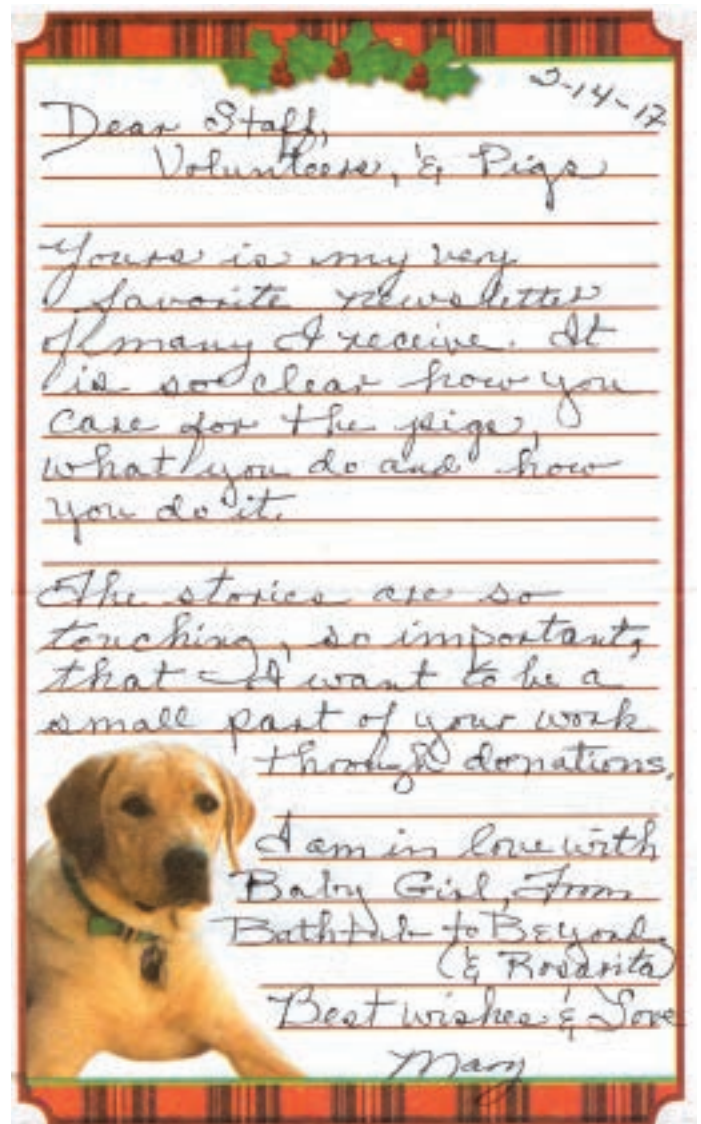 2-14-17
Dear Staff,
Volunteers, & Pigs
Yours is my very
favorite newsletter
of many I receive. It
is so clear how you
care for the pigs,
what you do and how
you do it.
The stories are so
touching, so important,
that I want to be a
small part of your work
through donations.
I am in love with
Baby Girl, From
Bathtub to Beyond.
(& Rosarita)
Best wishes & Love
Mary